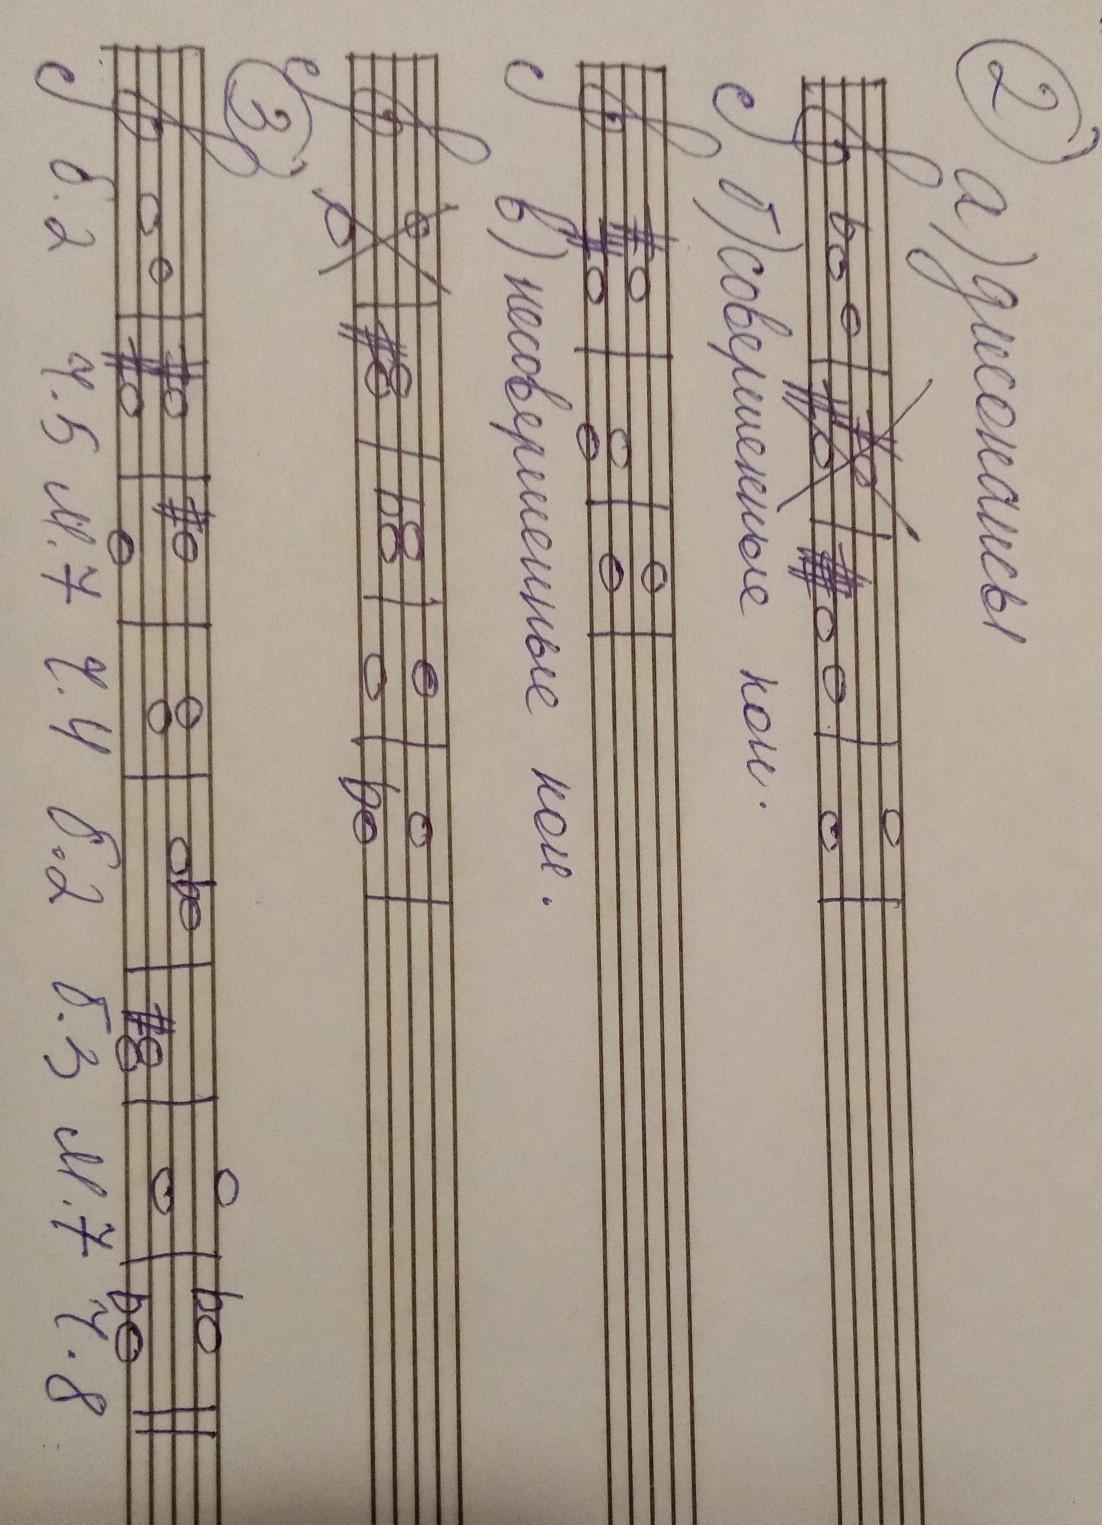 2) а) диссонансы
б) совершенные кон.
в) несовершенные кон.
3)
б.2 ч.5 м.7 ч.4 б.2 б.3 м.7 ч.8